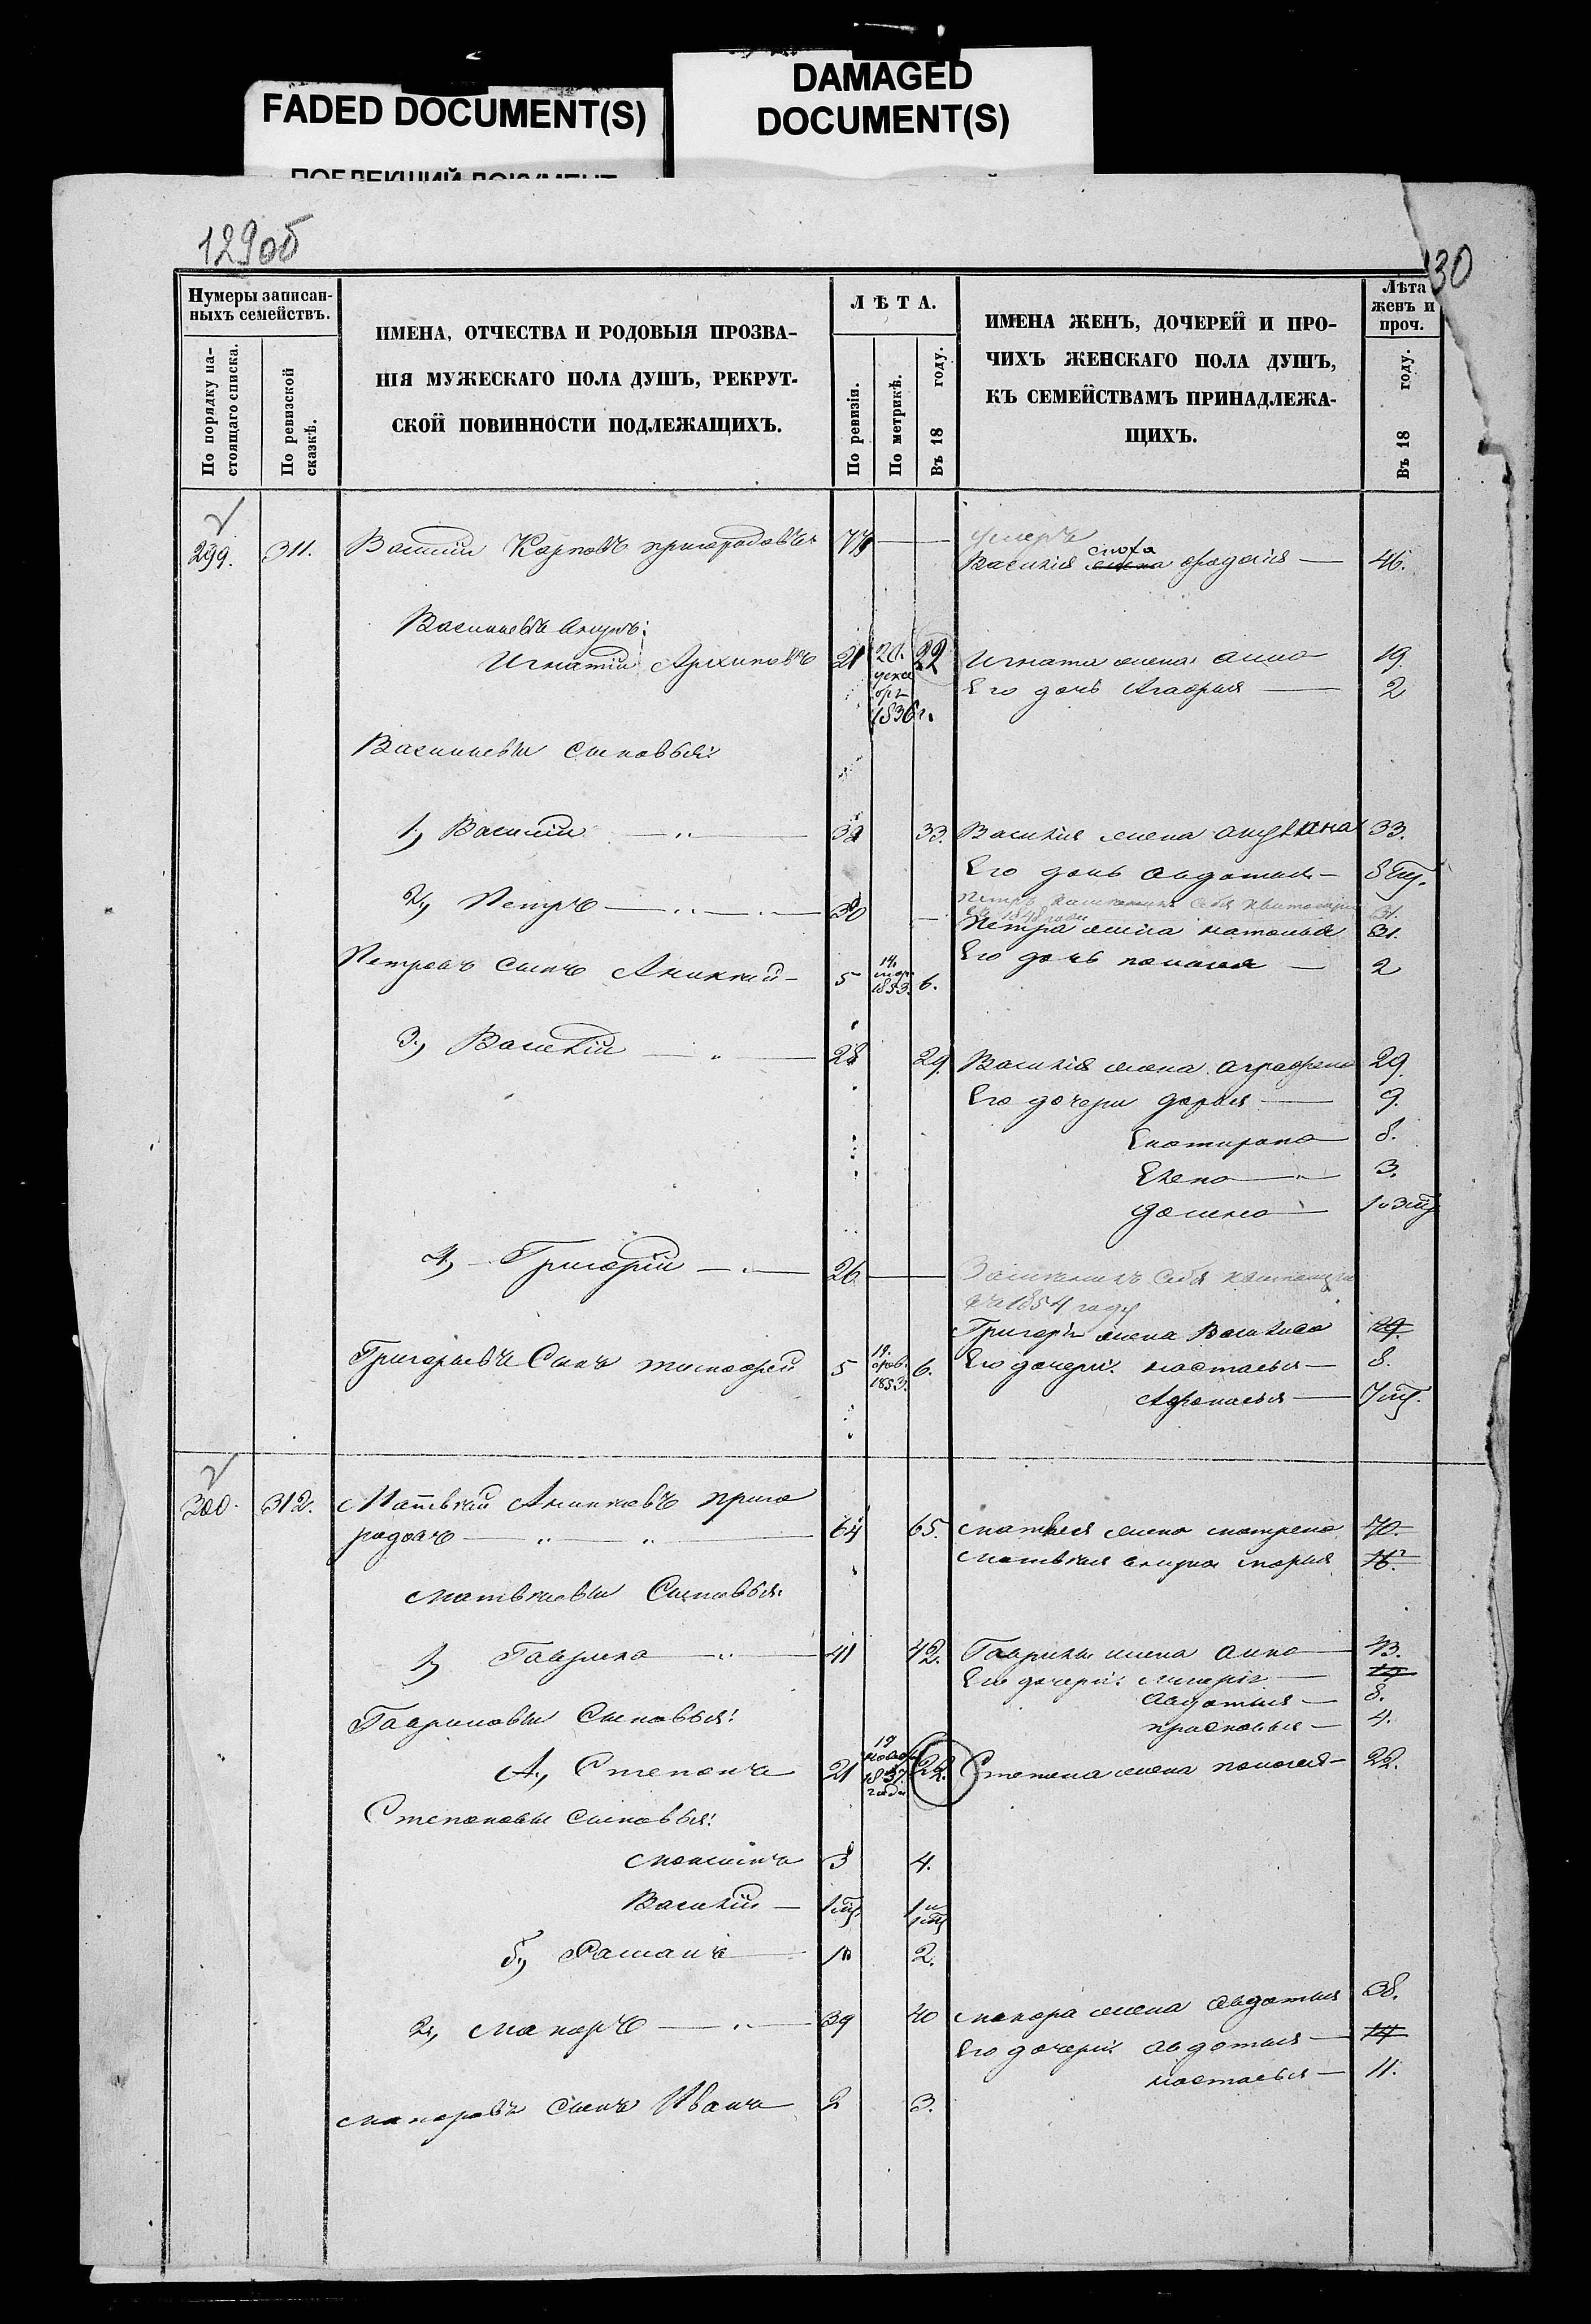 FADED DOCUMENT(S)
DAMAGED
DOCUMENT(S)
129об
130
Нумеры записан-
ныхъ семействъ.
По порядку на-
стоящаго списка.
По ревизской
сказкѣ.
ИМЕНА, ОТЧЕСТВА И РОДОВЫЯ ПРОЗВА-
НІЯ МУЖЕСКАГО ПОЛА ДУШЪ, РЕКРУТ-
СКОЙ ПОВИННОСТИ ПОДЛЕЖАЩИХЪ.
ЛѢТА.
По ревизіи.
По метрикѣ.
Въ 18 году.
ИМЕНА ЖЕНЪ, ДОЧЕРЕЙ И ПРО-
ЧИХЪ ЖЕНСКАГО ПОЛА ДУШЪ,
КЪ СЕМЕЙСТВАМЪ ПРИНАДЛЕЖА-
ЩИХЪ.
Лѣта
женъ и
проч.
Въ 18 году.
299. 311. Василій Карповъ 77 — — умеръ
Василія сноха 46.
Васильевъ внукъ:
Игнатій Архиповъ 21 20. дека бря 1836 г. 22 Игната жена Анна 19.
Его дочь 2
Васильевы сыновья:
1, Василій — " — 32 33. Василія жена 33.
Его дочь Авдотья —
2, Петръ — " — 30 — Петра жена Наталья 31.
Петровъ сынъ Аникей — 5 14. 1853. 6. Его дочь — 2
3, Василій — " — 28 29. Василія жена Аграфена 29.
Его дочери Дарья — 9.
Екатирина 8.
Елена — " — 3.
Домна —
4, Григорій — " — 26 —
въ 1854 году
Григорія жена Василиса
Григорьевъ сынъ Тимофей 5 19. 1853. 6. Его дочери: Настасья — 8.
Афонасья —
300. 312. Матвей Аникеевъ приго
родовъ — " — " — 64 65. Матвея жена Матрена 70.
Матвея внука Марья
Матвеевы Сыновья:
1, Гаврила — " — 41 42. Гаврилы жена Анна — 43.
Его дочери:
Авдотья — 8.
Прасковья — 4.
Гавриловы Сыновья:
А, Степанъ 21 19 1837. года 22. Степана жена — 22.
Степановы сыновья:
3 4.
Василій —
б, Романъ — 1 2.
2, Макаръ — " — 39 40 Макара жена Авдотья 38.
Его дочери: Авдотья —
Настасья — 11.
Макаровъ сынъ Иванъ 2 3.